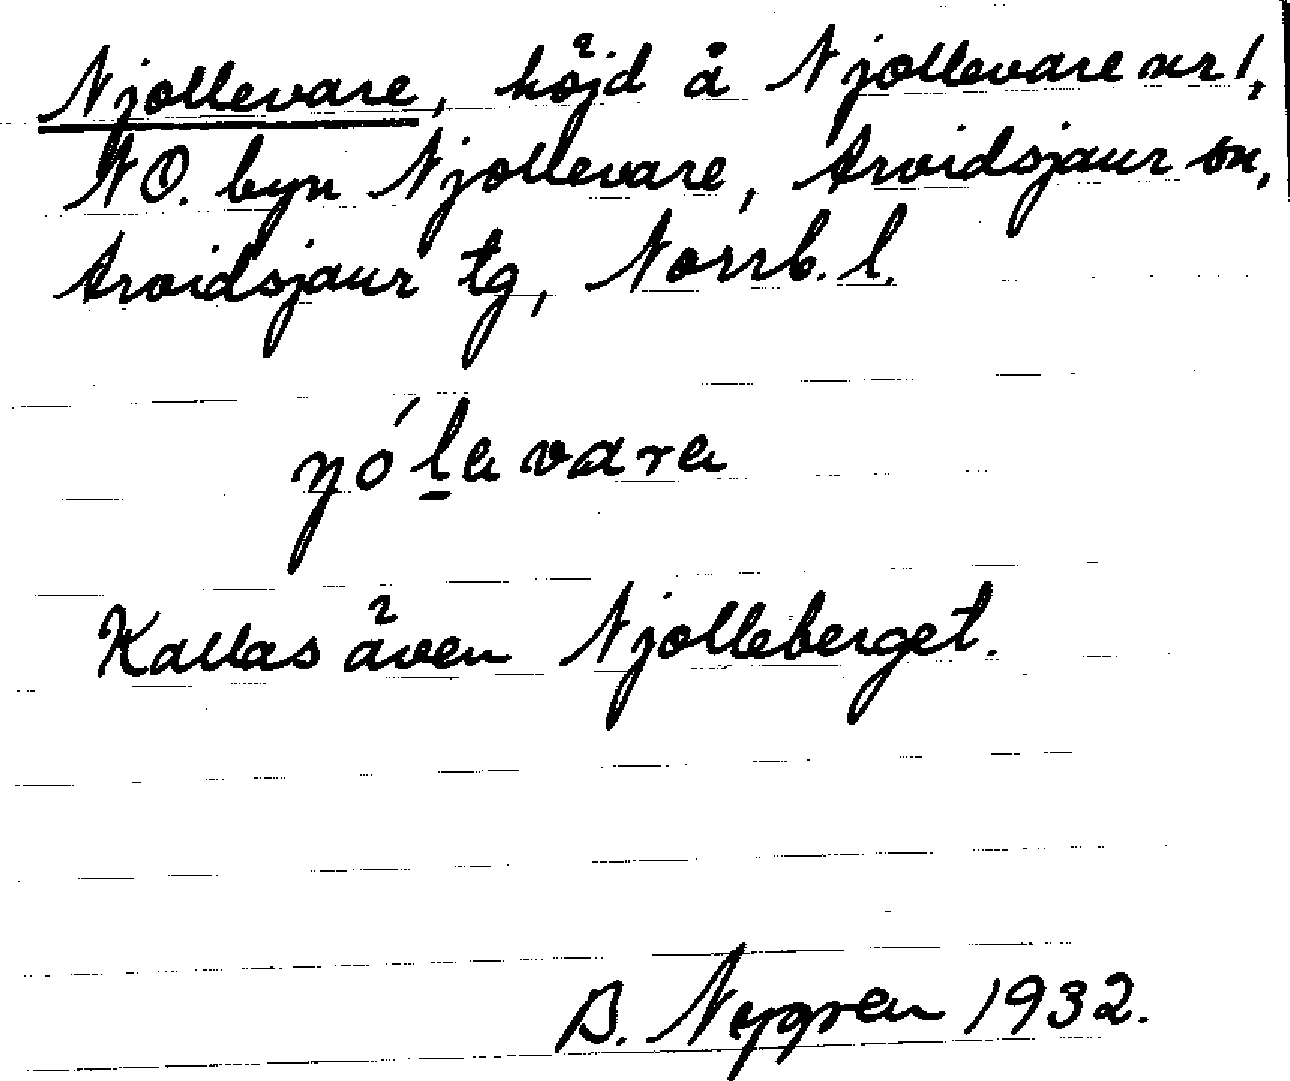 Njollevare, höjd å Njollevare nr 1,
NO. byn Njollevare, Arvidsjaur sn,
Arvidsjaur tg, Norrb. l.
yó´l̲a vara
Kallas även Njolleberget.
B. Nygren 1932.